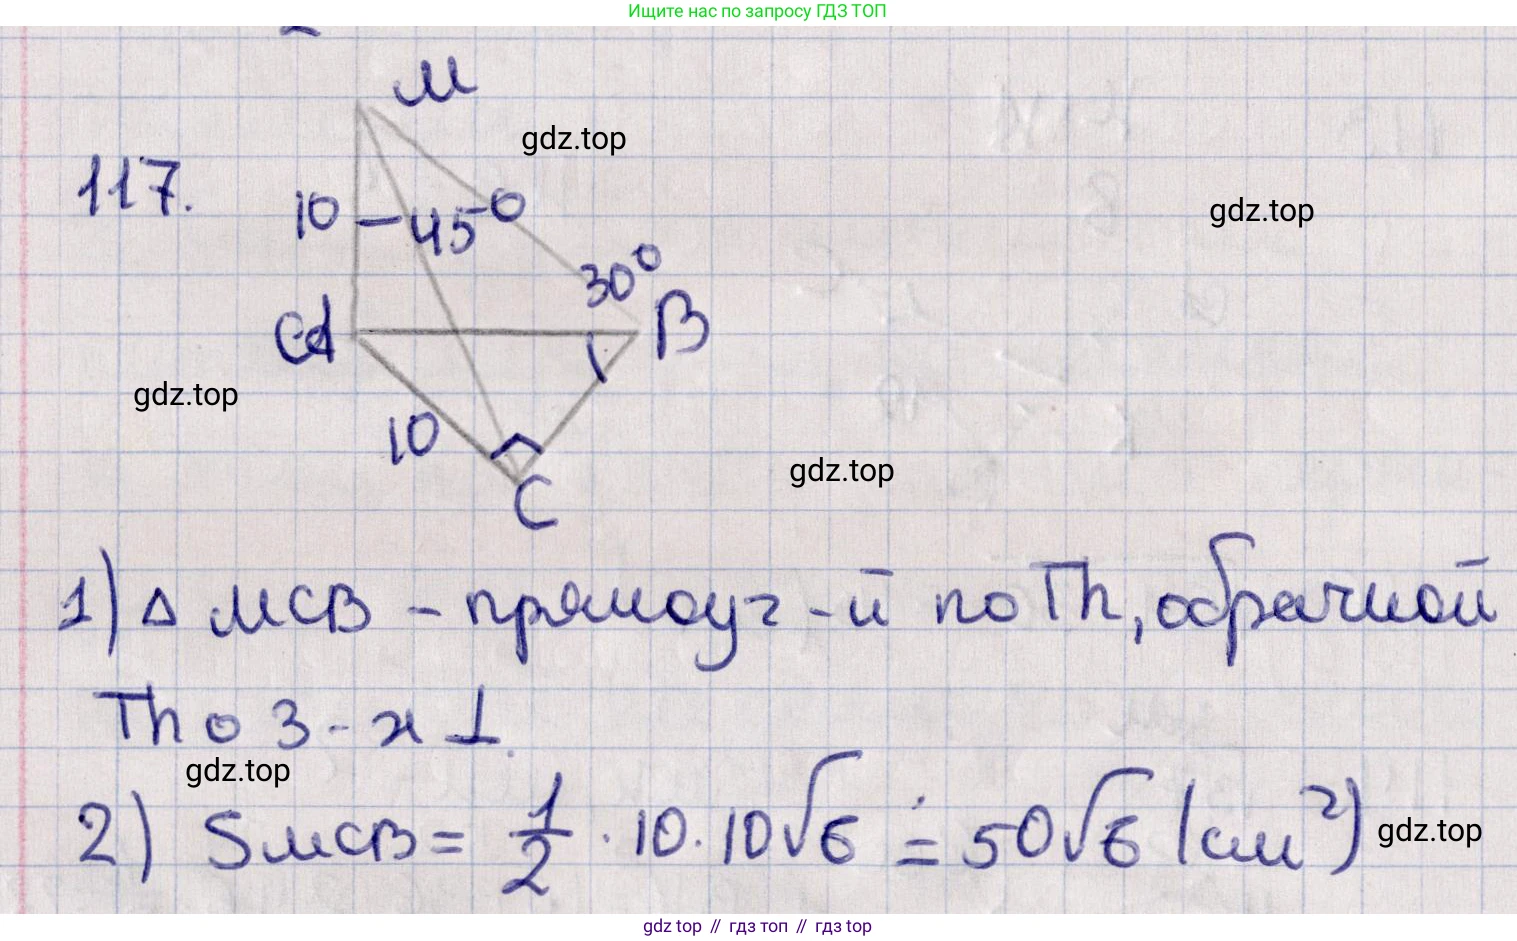 Ищите нас по запросу ГДЗ ТОП
М
gdz.top
117.
10
45°
gdz.top
30°
А
В
gdz.top
10
gdz.top
С
1) Δ МСВ - прямоуг-й по Th, обратной
Th о 3-х ⊥.
gdz.top
2) SМСВ = 1/2 · 10 · 10√6 = 50√6 (см²)
gdz.top
gdz top // гдз топ // гдз top